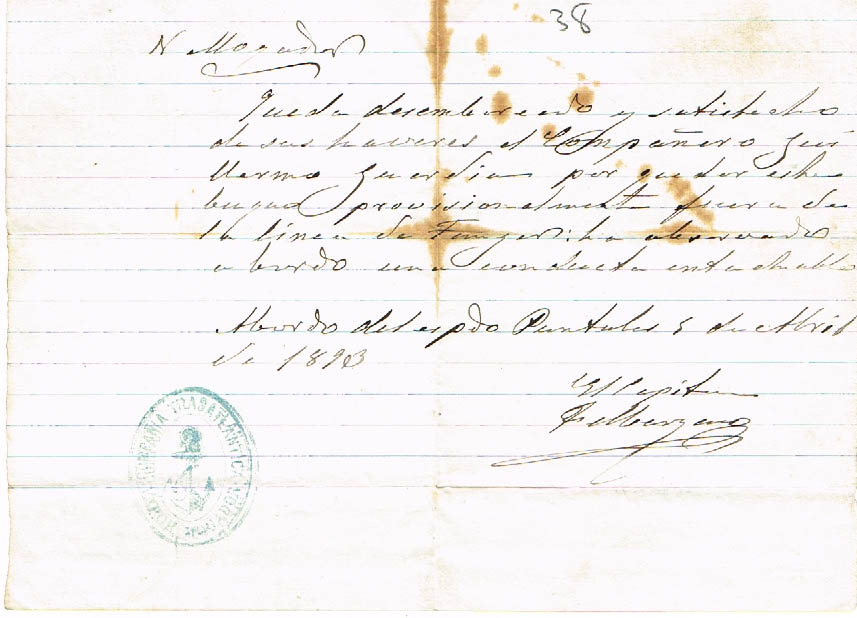 38
V Mogador
Queda desembarcado y satisfecho
de sus haveres el Compañero Gui
llermo Guardia por quedar este
buque provisionalmente fuera de
la linea de Tanger: ha observado
a bordo una conducta intachable
Abordo del espdo Puntales 5 de Abril
de 1893
El Capitan
COMPAÑIA TRASATLANTICA
VAPOR MOGADOR